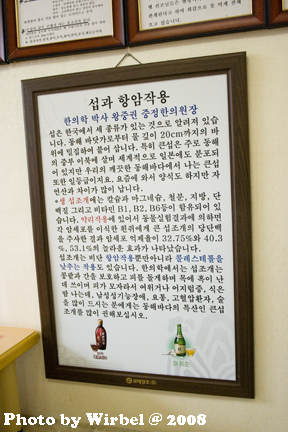 섭과 항암작용
한의학 박사 왕중권 증정한의원장
섭은 한국에서 세 종류가 있는 것으로 알려져 있습
니다. 동해 바닷가로부터 물 깊이 20cm까지의 바
위에 밀집하여 붙어 삽니다. 특히 큰섭은 주로 동해
의 중부 이북에 살며 세계적으로 일본에도 분포되
어 있지만 우리의 깨끗한 동해바다에서 나는 큰섭
또한 일등급이지요. 요즘에 와서 양식도 하지만 자
연산과 차이가 많이 납니다.
*생 섭조개에는 칼슘과 마그네슘, 철분, 지방, 단
백질 그리고 비타민 B1, B2, B6등이 함유되어 있
습니다. 약리작용에 있어서 동물실험결과에 의하면
각 암세포를 이식한 흰쥐에게 큰 섭조개의 당단백
을 주사한 결과 암세포 억제율이 32.75%와 40.3
%, 53.1%의 놀라운 효과가 나타났습니다!
섭조개는 비단 항암작용뿐만아니라 콜레스테롤을
낮추는 작용도 있습니다. 한의학에서는 섭조개는
콩팥과 간을 보호하고 피를 돌게하며 목에 혹이 난
데 쓰이며 피가 모자라서 여위거나 어지럼증, 식은
땀 나는데, 남성성기능장애, 요통, 고혈압환자, 술
을 많이 드시는 분에게는 동해바다의 특산인 큰섭
조개를 많이 권해보십시오.
Photo by Wirbel @ 2008